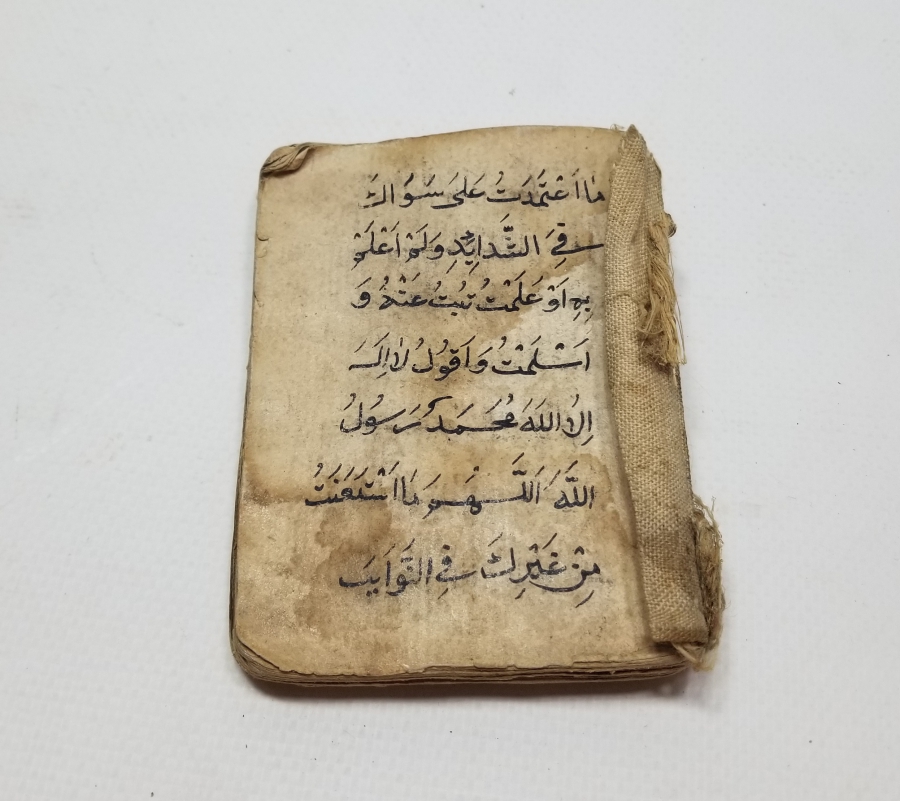 مَا اَعْتَمَدَتُ عَلَى سَوَاكَ
فِي الشَّدَايِدِ وَلَمْ اَعْلَمْ
بِهِ اَوْ عَلَمْتُ تُبْتُ عَنْهُ وَ
اَسْلَمْتُ وَاَقُولُ لَا اِلَهَ
اِلَّا اللَّهَ مُحَمَد رَسُولُ
اللَّهَ اَللَّهُمَ مَا اَسْتَعَنَتُ
مِنْ غَيْرِكَ فِي النَّوَايَبِ